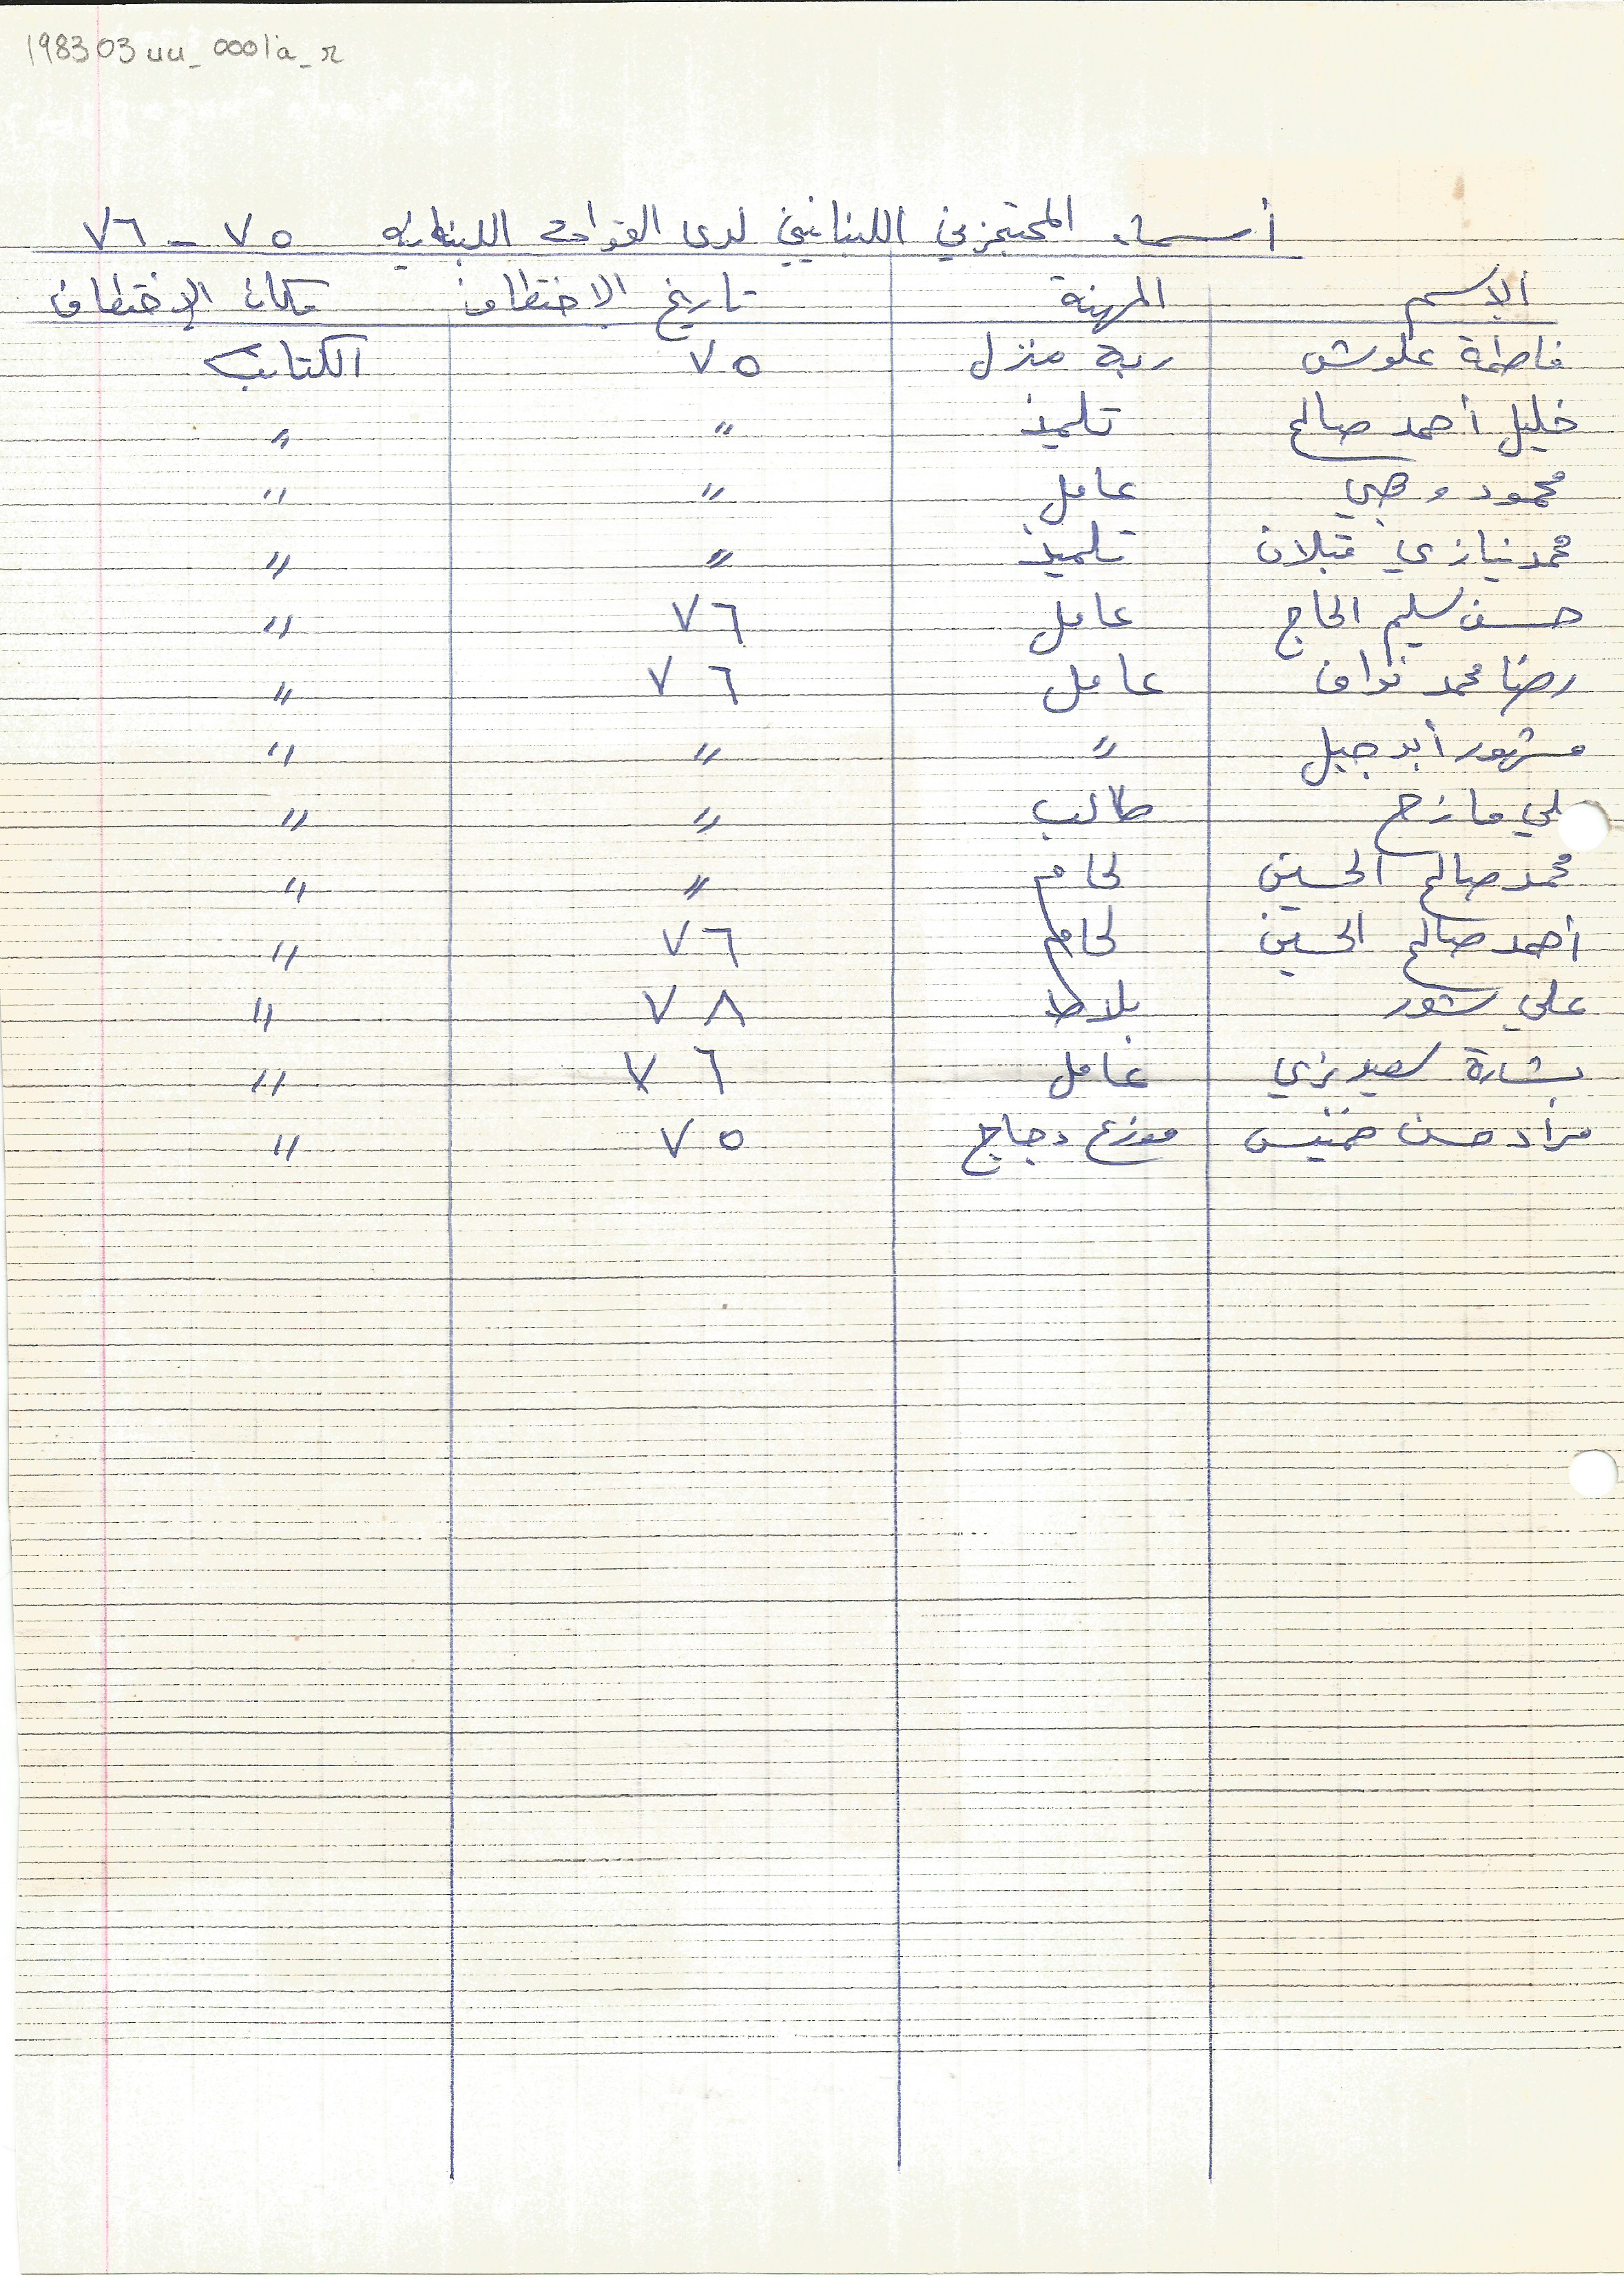 198303uu_0001a_r
أسماء المحتجزين اللبنانيين لدى القوات اللبنانيه ٧٥ - ٧٦
الاسم المهنة تاريخ الاختطاف مكان الإختطاف
فاطمة علوش ربة منزل ٧٥ الكتائب
خليل أحمد صالح تلميذ " "
محمود وهبي عامل " "
محمد نيازي قبلان تلميذ " "
حسن سليم الحاج عامل ٧٦ "
رضا محمد نواف عامل ٧٦ "
مشهور أبو جبل " " "
لي مازح طالب " "
محمد صالح الحسين لحام " "
أحمد صالح الحسين لحام ٧٦ "
علي شور بلاط ٧٨ "
بشارة عامل ٧٦ "
مراد حسن موزع دجاج ٧٥ "